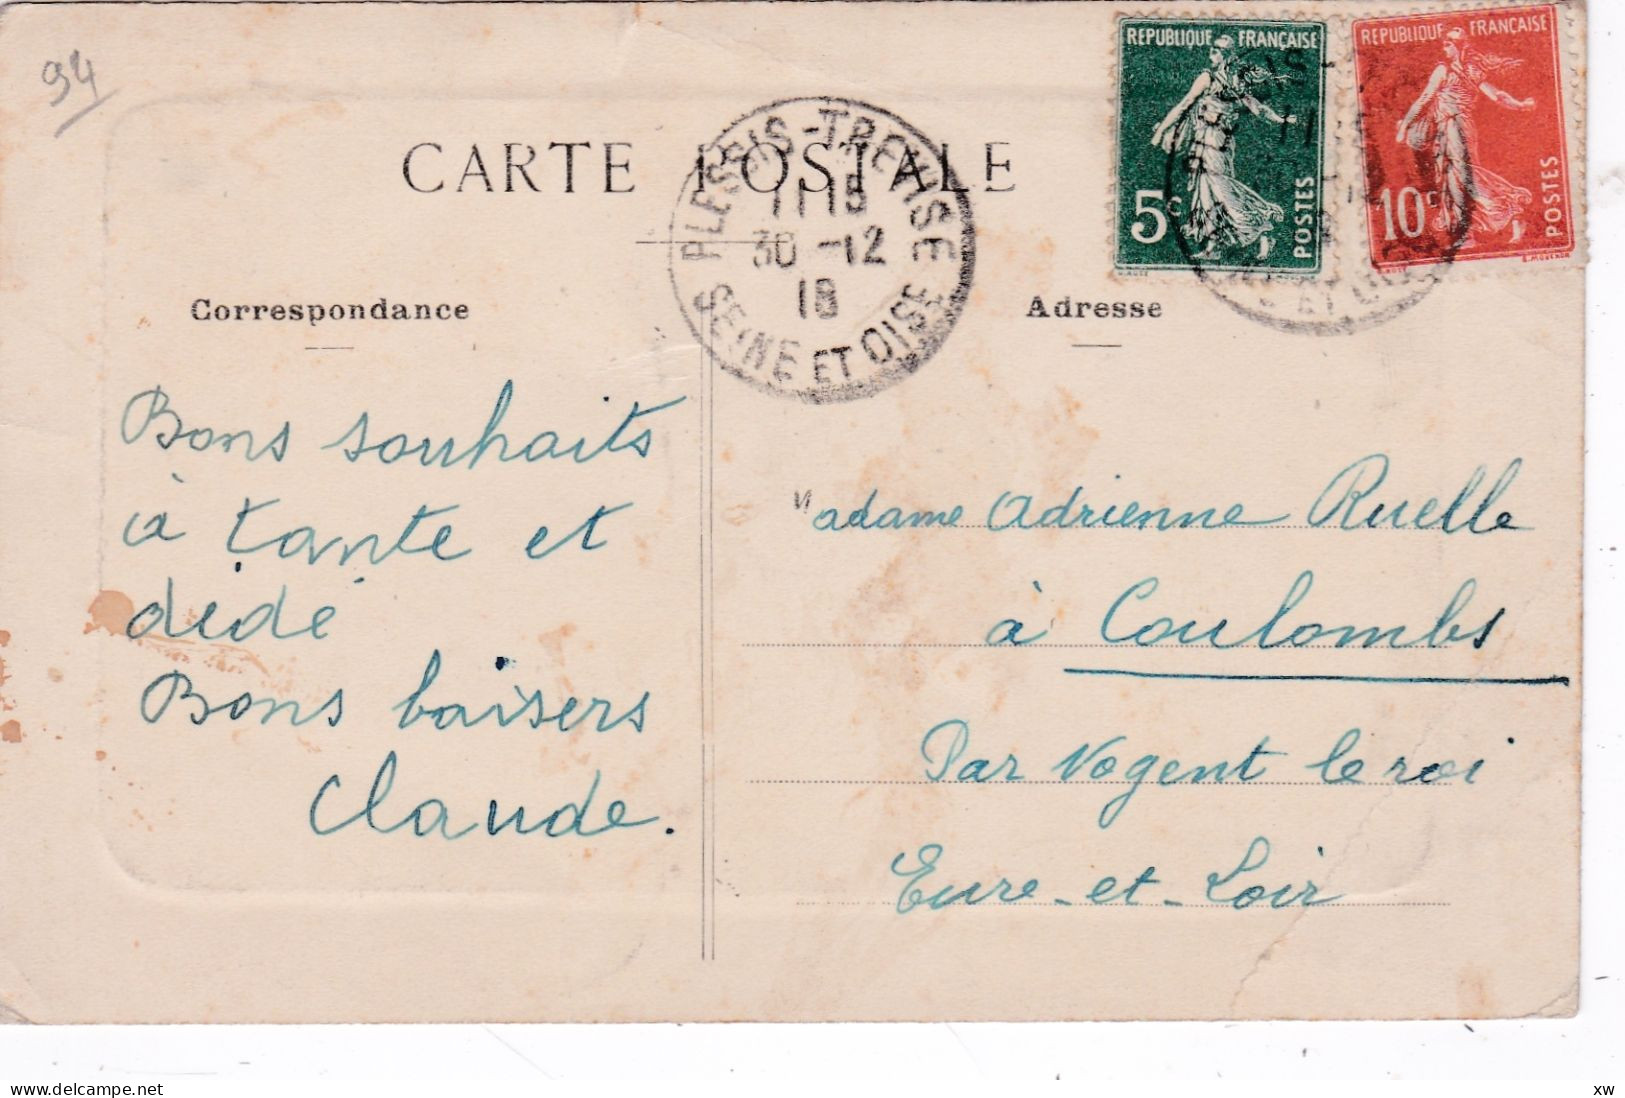 94
REPUBLIQUE FRANÇAISE
5c
POSTES
REPUBLIQUE FRANÇAISE
10c
POSTES
CARTE POSTALE
PLESSIS-TREVISE
11 15
30 -12
18
SEINE ET OISE
Correspondance
Adresse
Bons souhaits
à tante et
didé
Bons baisers
Claude.
Madame Adrienne Ruelle
à Coulombs
Par Nogent le roi
Eure-et-Loir
www.delcampe.net
xw